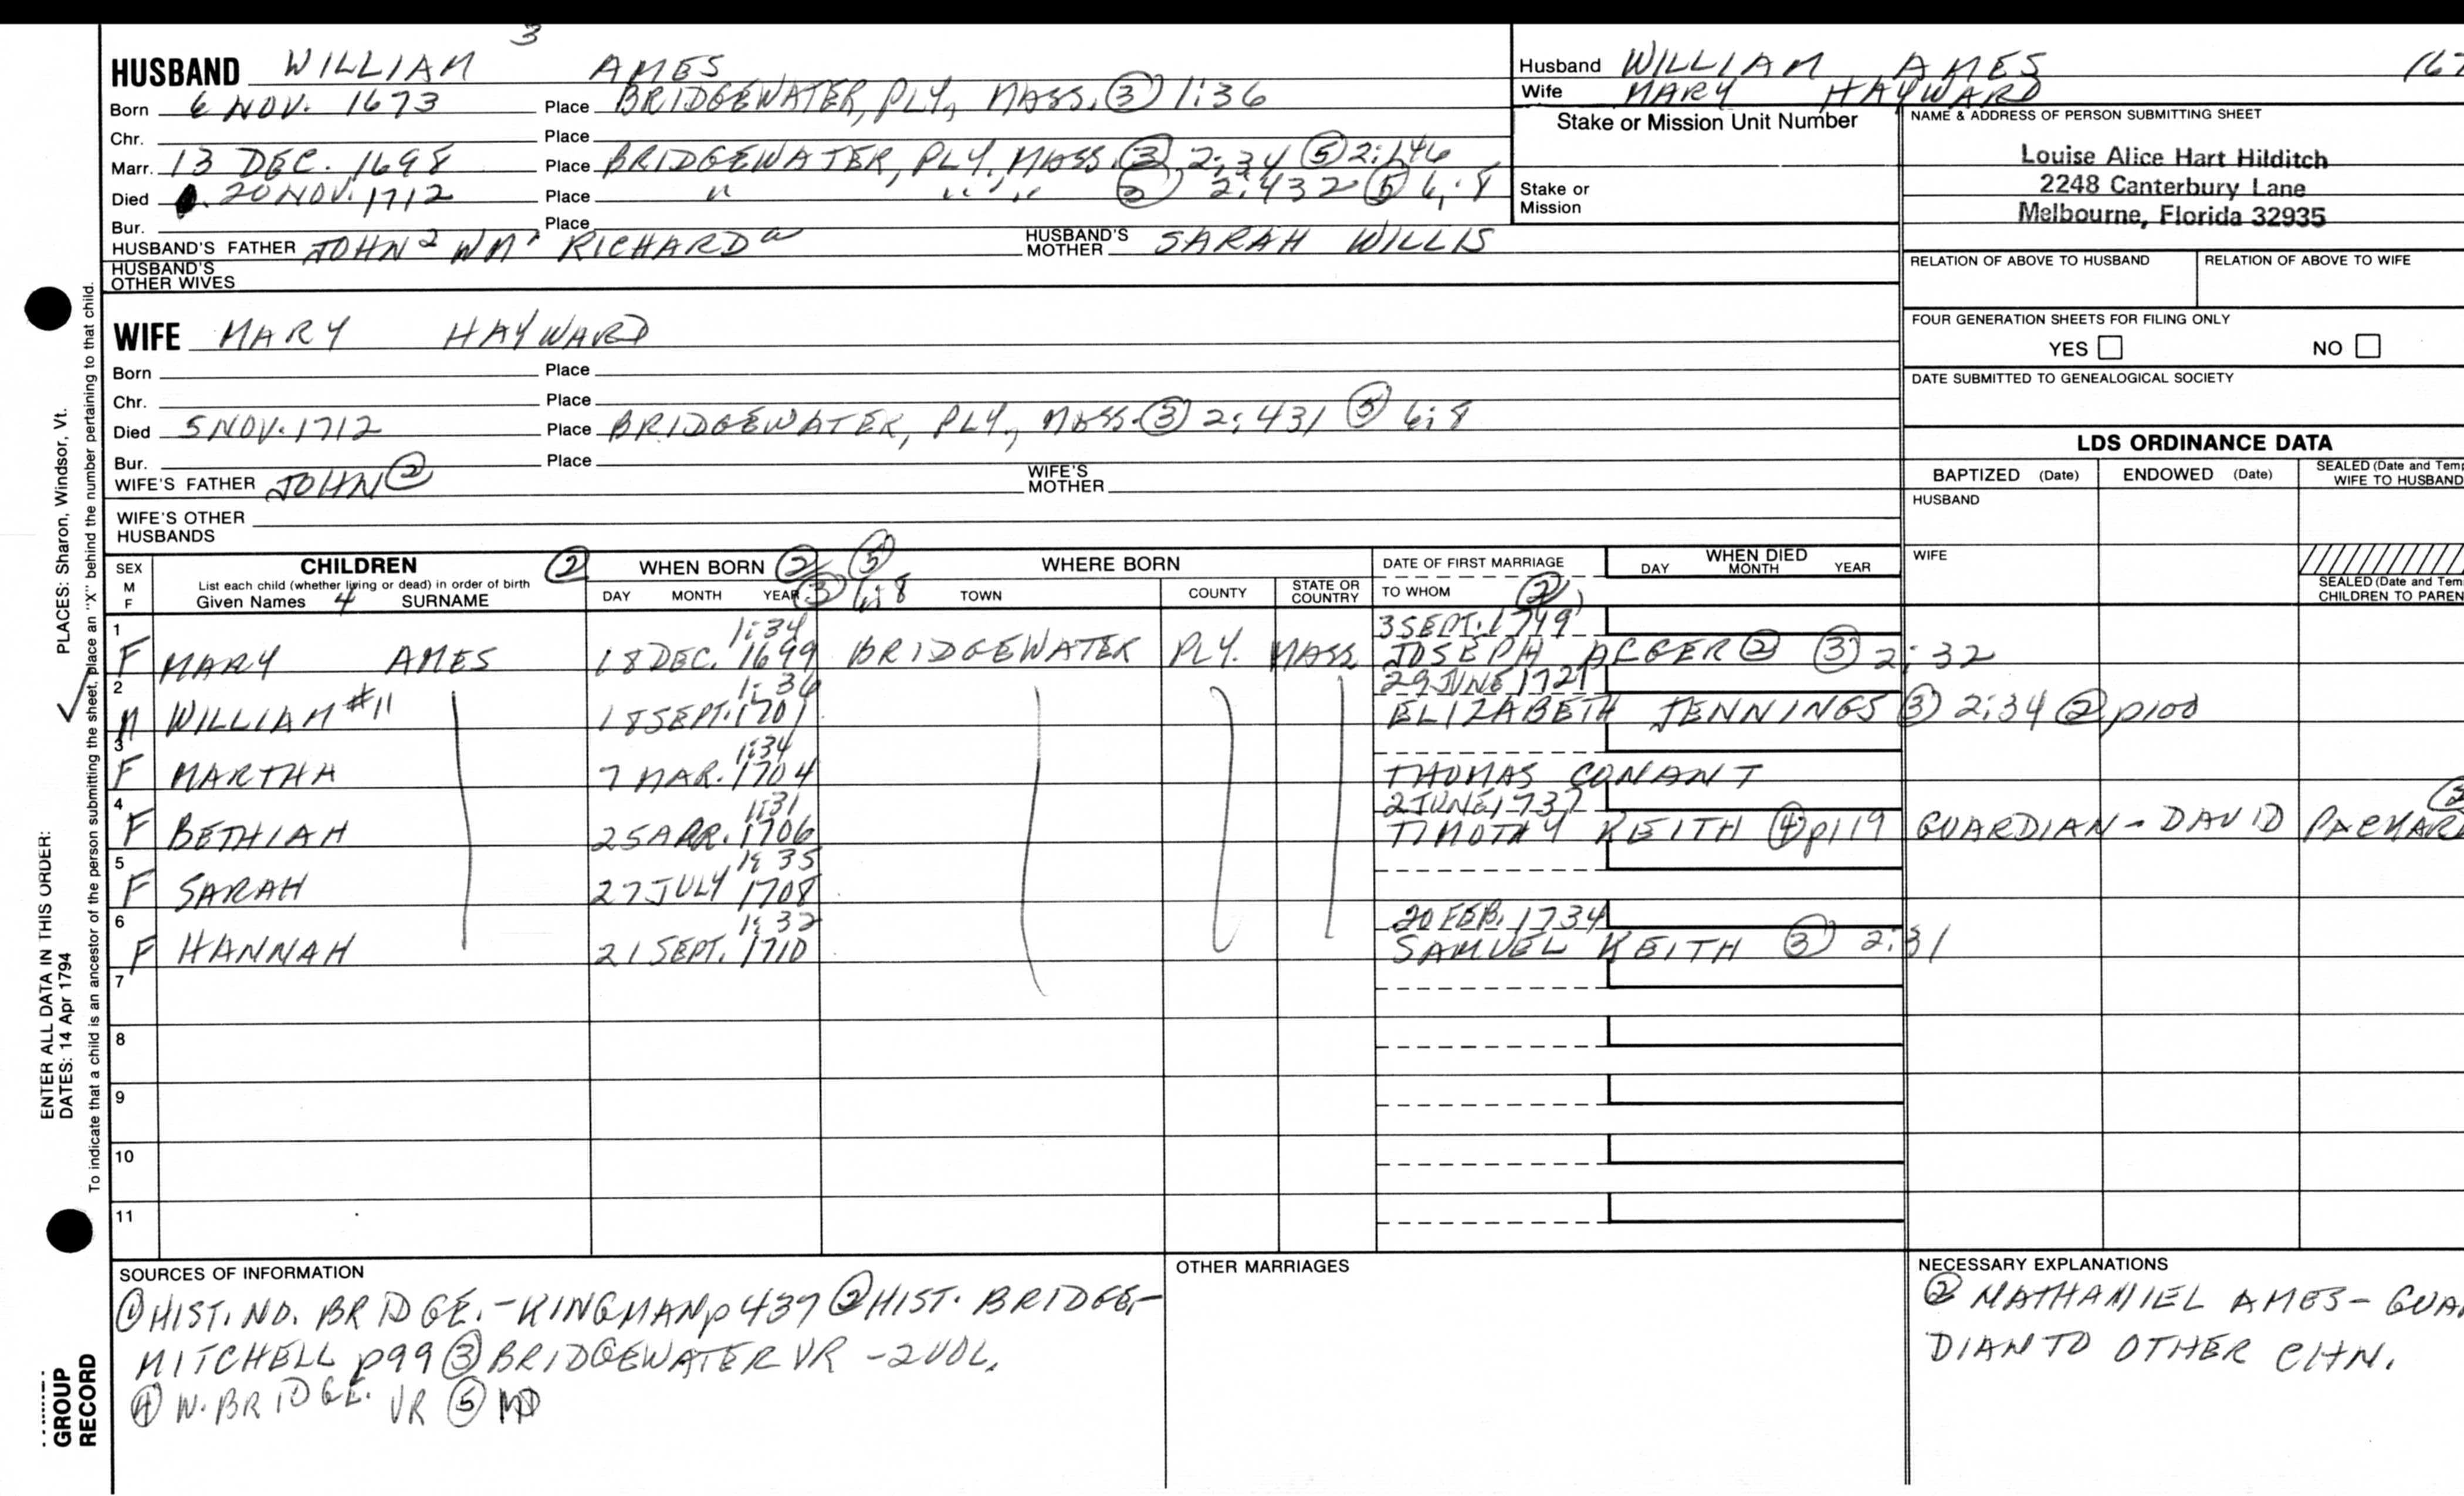 HUSBAND WILLIAM 3 AMES
Born 6 NOV. 1673 Place BRIDGEWATER, PLY, MASS. ③ 1:36
Chr. Place
Marr. 13 DEC. 1698 Place BRIDGEWATER, PLY, MASS. ③ 2:34 ⑤ 2:146
Died 20 NOV. 1712 Place " " " " 2:432 ⑤ 6:8
Bur. Place
HUSBAND'S FATHER JOHN 2 WM 1 RICHARD a HUSBAND'S MOTHER SARAH WILLIS
HUSBAND'S OTHER WIVES
WIFE MARY HAYWARD
Born Place
Chr. Place
Died 5 NOV. 1712 Place BRIDGEWATER, PLY, MASS. ③ 2:431 ⑤ 6:8
Bur. Place
WIFE'S FATHER JOHN ② WIFE'S MOTHER
WIFE'S OTHER HUSBANDS
Husband WILLIAM AMES (167
Wife MARY HAYWARD
Stake or Mission Unit Number
Stake or Mission
NAME & ADDRESS OF PERSON SUBMITTING SHEET
Louise Alice Hart Hilditch
2248 Canterbury Lane
Melbourne, Florida 32935
RELATION OF ABOVE TO HUSBAND RELATION OF ABOVE TO WIFE
FOUR GENERATION SHEETS FOR FILING ONLY
YES NO
DATE SUBMITTED TO GENEALOGICAL SOCIETY
LDS ORDINANCE DATA
BAPTIZED (Date) ENDOWED (Date) SEALED (Date and Temp
WIFE TO HUSBAND
HUSBAND
WIFE
SEALED (Date and Tem
CHILDREN TO PAREN
SEX M F CHILDREN ② WHEN BORN ② ③ ⑤ 6:8 WHERE BORN DATE OF FIRST MARRIAGE WHEN DIED
List each child (whether living or dead) in order of birth DAY MONTH YEAR
Given Names 4 SURNAME DAY MONTH YEAR TOWN COUNTY STATE OR COUNTRY TO WHOM ②
1 1:34 3 SEPT. 1749
F MARY AMES 18 DEC. 1699 BRIDGEWATER PLY. MASS. JOSEPH ALGER ② ③ 2:32
2 1:36 29 JUNE 1721
M WILLIAM #11 18 SEPT. 1701 ELIZABETH JENNINGS ③ 2:34 ② p100
3 1:34
F MARTHA 7 MAR. 1704 THOMAS CONANT
4 1:31 2 JUNE 1737
F BETHIAH 25 APR. 1706 TIMOTHY KEITH ④ p119 GUARDIAN - DAVID PACKARD
5 1:35
F SARAH 27 JULY 1708
6 1:32 20 FEB. 1734
F HANNAH 21 SEPT. 1710 SAMUEL KEITH ③ 2:31
7
8
9
10
11
SOURCES OF INFORMATION
① HIST. NO. BRIDGE. - KINGMAN p 437 ② HIST. BRIDGE. -
MITCHELL p99 ③ BRIDGEWATER VR - 2 VOL.
④ W. BRIDGE. VR ⑤ MD
OTHER MARRIAGES
NECESSARY EXPLANATIONS
② NATHANIEL AMES - GUAR
DIAN TO OTHER CHN.
PLACES: Sharon, Windsor, Vt.
To indicate that a child is an ancestor of the person submitting the sheet, place an "X" behind the number pertaining to that child.
ENTER ALL DATA IN THIS ORDER:
DATES: 14 Apr 1794
GROUP
RECORD